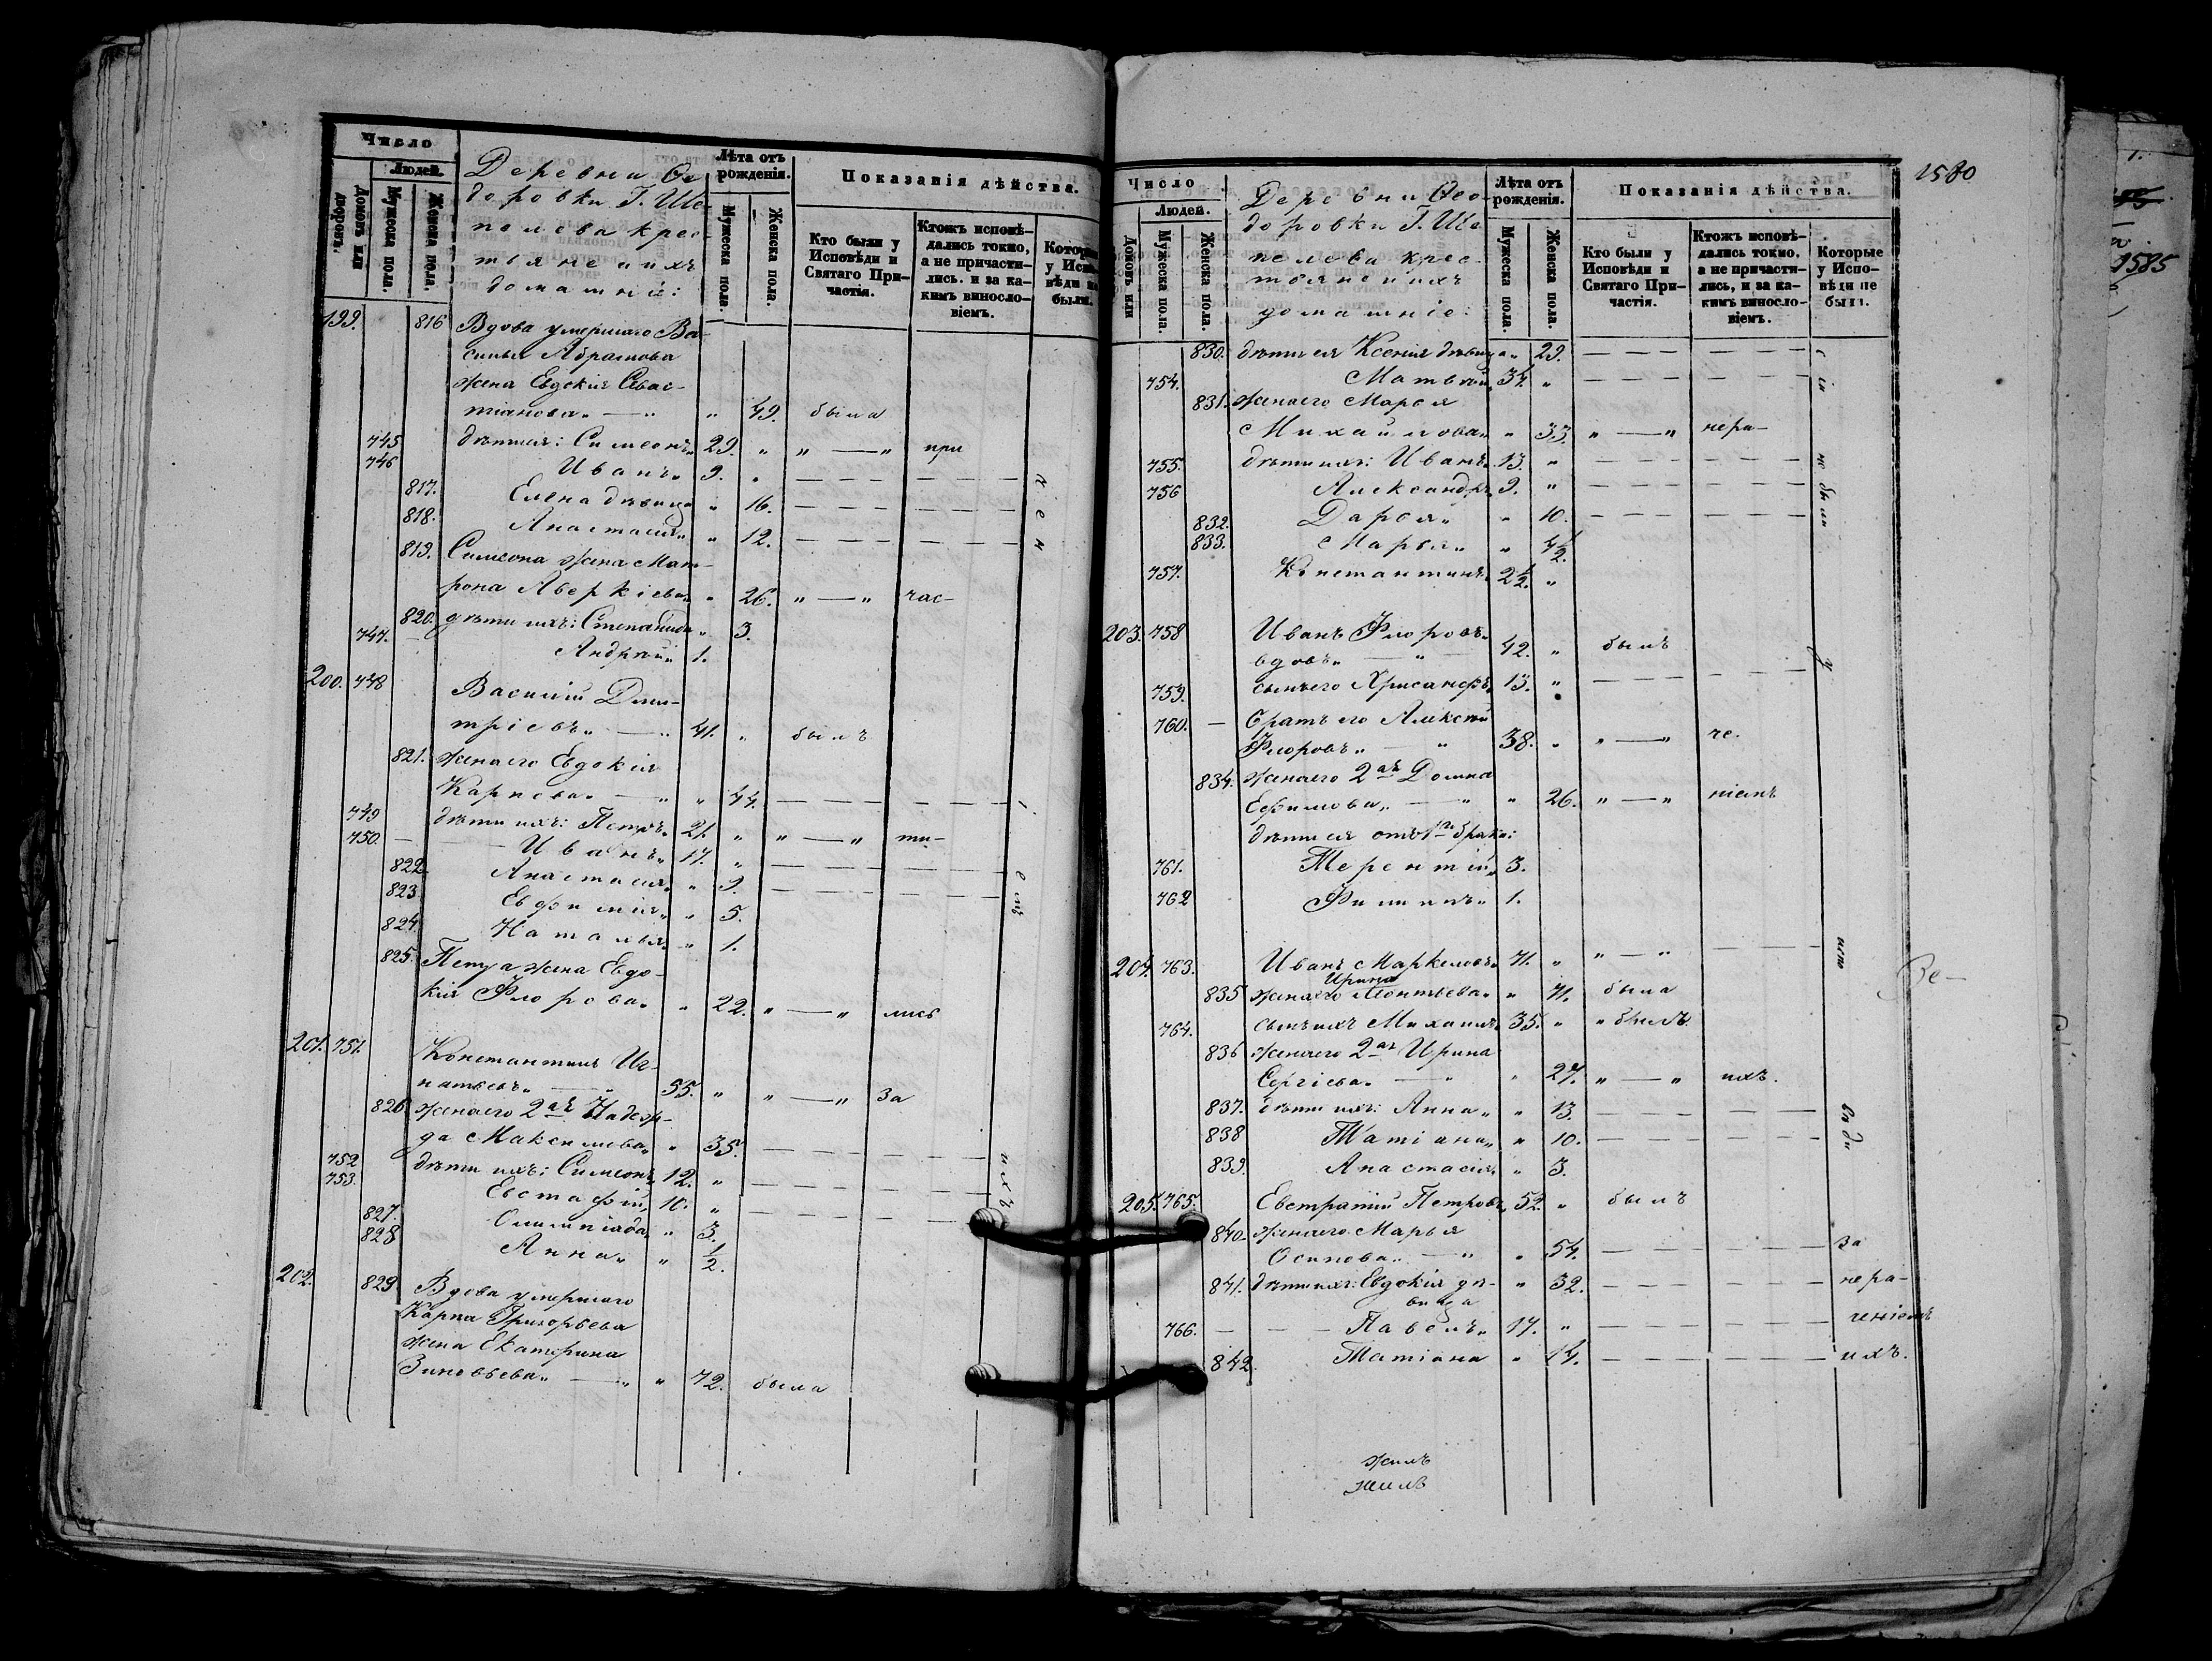 Число
Людей.
Домовъ или дворовъ.
Мужеска пола.
Женска пола.
Деревни Ѳе-
доровки Г. Ше-
пелева крес-
тьяне и ихъ
домашніе:
Лѣта отъ рожденія.
Мужеска пола.
Женска пола.
Показанія дѣйства.
Кто были у Исповѣди и Святаго При-частія.
Ктожъ исповѣ-дались токмо, а не причасти-лись. и за ка-кимъ винсло-віемъ.
199. 816 Вдова умершаго Ва-
силья Абрамова
жена Евдокія Севас-
тіянова „ — „ „ 49. была
745 дѣти ея: Симеонъ „ 29. „ „ — „ при
746 Иванъ „ 9. „ — — — — — —
817. Елена дѣвица „ 16. — — — — — —
818. Анастасія „ „ 12. — — — — — —
819. Симеона жена Мат-
рона Аверкіева „ „ 26. „ — „ час-
820. дѣти ихъ: Степанида „ 3.
747. Андрей „ 1.
200. 748 Василій Дми-
тріевъ „ — „ 41. „ былъ
821. жена его Евдокія
Карпова „ — „ „ 44. — — — — —
749 дѣти ихъ: Петръ „ 21. „ „ — „ ти-
750. — Иванъ „ 17. „ — — — — —
822. Анастасія „ „ 9. — — — — —
823. Евфимія „ „ 5.
824. Наталья „ „ 1.
825. Петра жена Евдо-
кія Флорова „ „ 22. „ — „ лись
201. 751. Константинъ Иг-
натьевъ „ — „ 55. „ „ — „ за
826. жена его 2ая Надеж-
да Максимова „ „ 35. — — — — —
752 дѣти ихъ: Симеонъ „ 12. „ — — — — —
753. Евстафій „ 10. „ — — — — —
827. Олимпіада „ „ 3.
828 Анна „ „ ½.
202. 829 Вдова умершаго
Карпа Григорьева
жена Екатерина
Зиновьева „ — „ „ 72. была
ихъ
1580
Число
Людей.
Домовъ или
Мужеска пола.
Женска пола.
Деревни Ѳео-
доровки Г. Ше-
пелева крес-
тьяне и ихъ
домашніе:
Лѣта отъ рожденія.
Мужеска пола.
Женска пола.
Показанія дѣйства.
Кто были у Исповѣди и Святаго При-частія.
Ктожъ исповѣ-дались токмо, а не причасти-лись, и за ка-кимъ винсло-віемъ.
Которые у Испо-вѣди не были.
830. дѣти ея Ксенія дѣвица „ 29. — — — — — —
754. Матвѣй „ 34. „ — — — — — —
831. жена его Марѳа
Михайлова „ „ 33. „ — „ нера-
755. дѣти ихъ: Иванъ „ 13. „ — — — — — —
756 Александръ „ 9. „ — — — — — —
832. Дарья „ „ 10. — — — — — —
833. Марья „ „ 4½.
757. Константинъ „ 2½. „
203. 758 Иванъ Флоровъ „
вдовъ „ — „ 42. „ былъ
759. сынъ его Хрисанфъ „ 13. „ — — — — — —
760. — братъ его Алексѣй
Флоровъ „ — „ 38. „ „ — „ че-
834. жена его 2ая Домна
Ефимова „ — „ „ 26. „ — „ ніемъ
дѣти ея отъ 1го брака:
761. Терентій „ 3.
762 Филиппъ „ 1.
204. 763. Иванъ Маркеловъ „ 71. „ „ — „ — — —
Ирина
835 жена его Леонтьева „ „ 71. была
764. сынъ ихъ Михаилъ „ 35. „ „ былъ
836 жена его 2ая Ирина
Сергіева „ — „ „ 27. „ — „ ихъ.
837. дѣти ихъ: Анна „ „ 13. — — — — — —
838 Татіана „ „ 10. — — — — — —
839. Анастасія „ „ 3.
205. 765. Евстратій Петровъ „ 52. „ былъ
840. жена его Марья
Осипова „ — „ „ 54. — — — — — за
841. дѣти ихъ: Евдокія дѣ- „ 32. — — — — — нера-
вица
766. — — — Павелъ „ 17. „ — — — — — ченіемъ
842. Татіана „ 14. — — — — — ихъ.
Ве-
жилъ
жилъ
1585